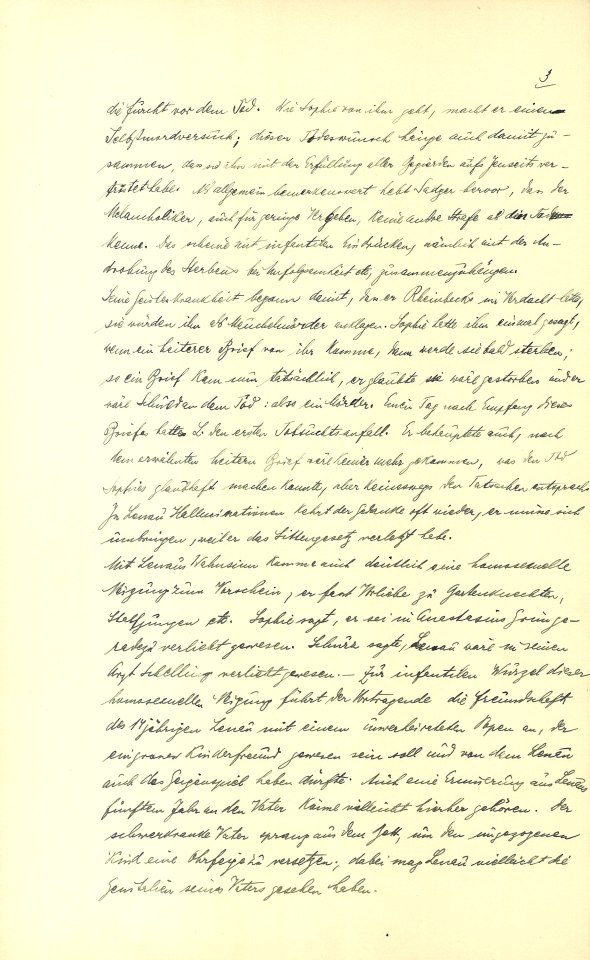 3
die Furcht vor dem Tod. Wie Sophie von ihm geht, macht er einen
Selbstmordversuch; dieser Todeswunsch hänge auch damit zu-
sammen, dass sie ihn mit der Erfüllung aller Begierden aufs Jenseits ver-
tröstet habe. Als allgemein bemerkenswert hebt Sadger hervor, dass der
Melancholiker, auch für geringe Vergehen, keine andre Strafe als den Tod
kenne. Das scheine mit infantilen Eindrücken, nämlich mit der An-
drohung des Sterbens bei Unfolgsamkeit etc, zusammenzuhängen.
Seine Geisteskrankheit begann damit, dass er Rheinbecks im Verdacht hatte,
sie würden ihn als Meuchelmörder anklagen. Sophie hatte ihm einmal gesagt,
wenn ein heiterer Brief von ihr komme, dann werde sie bald sterben;
so ein Brief kam nun tatsächlich, er glaubte sie wäre gestorben und er
wäre Schuld an dem Tod: also ein Mörder. Einen Tag nach Empfang dieses
Briefes hatte L. den ersten Tobsuchtsanfall. Er behauptete auch, nach
dem erwähnten heitern Brief wäre keiner mehr gekommen, was den Tod
Sophies glaubhaft machen konnte, aber keineswegs den Tatsachen entsprach.
In Lenaus Hallucinationen kehrt der Gedanke oft wieder, er müsse sich
umbringen, weil er das Sittengesetz verletzt habe.
Mit Lenaus Wahnsinn komme auch deutlich eine homosexuelle
Neigung zum Vorschein, er fand Vorliebe zu Gartenknechten,
Stalljungen etc. Sophie sagt, er sei in Anastasius Grün ge-
radezu verliebt gewesen. Schurz sagte, Lenau wäre in seinen
Arzt Schelling verliebt gewesen. — Zur infantilen Wurzel dieser
homosexuellen Neigung führt der Vortragende die Freundschaft
des 14jährigen Lenau mit einem unverheirateten Popen an, der
ein grosser Kinderfreund gewesen sein soll und von dem Lenau
auch das Geigenspiel haben dürfte. Auch eine Erinnerung aus Lenaus
fünftem Jahr an den Vater könne vielleicht hierher gehören. Der
schwerkranke Vater sprang aus dem Bett, um den ungezogenen
Kind eine Ohrfeige zu versetzen; dabei mag Lenau vielleicht die
Genitalien seines Vaters gesehen haben.